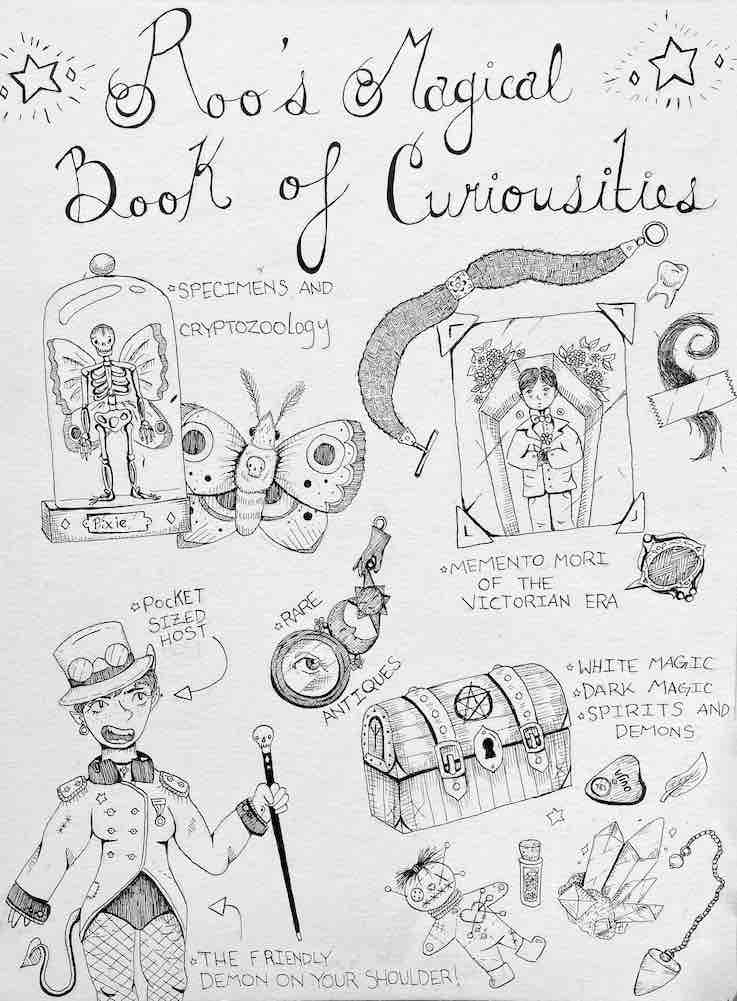 Roo's Magical
Book of Curiousities
☆SPECIMENS AND
CRYPTOZOOlOgY
Pixie
☆MEMENTO MORI
OF THE
VICTORIAN ERA
☆POCKET
SIZED
HOST
☆RARE
ANTIQUES
☆WHITE MAGIC
☆DARK MAGIC
☆SPIRITS AND
DEMONS
☆THE FRIENDLY
DEMON ON YOUR SHOULDER!